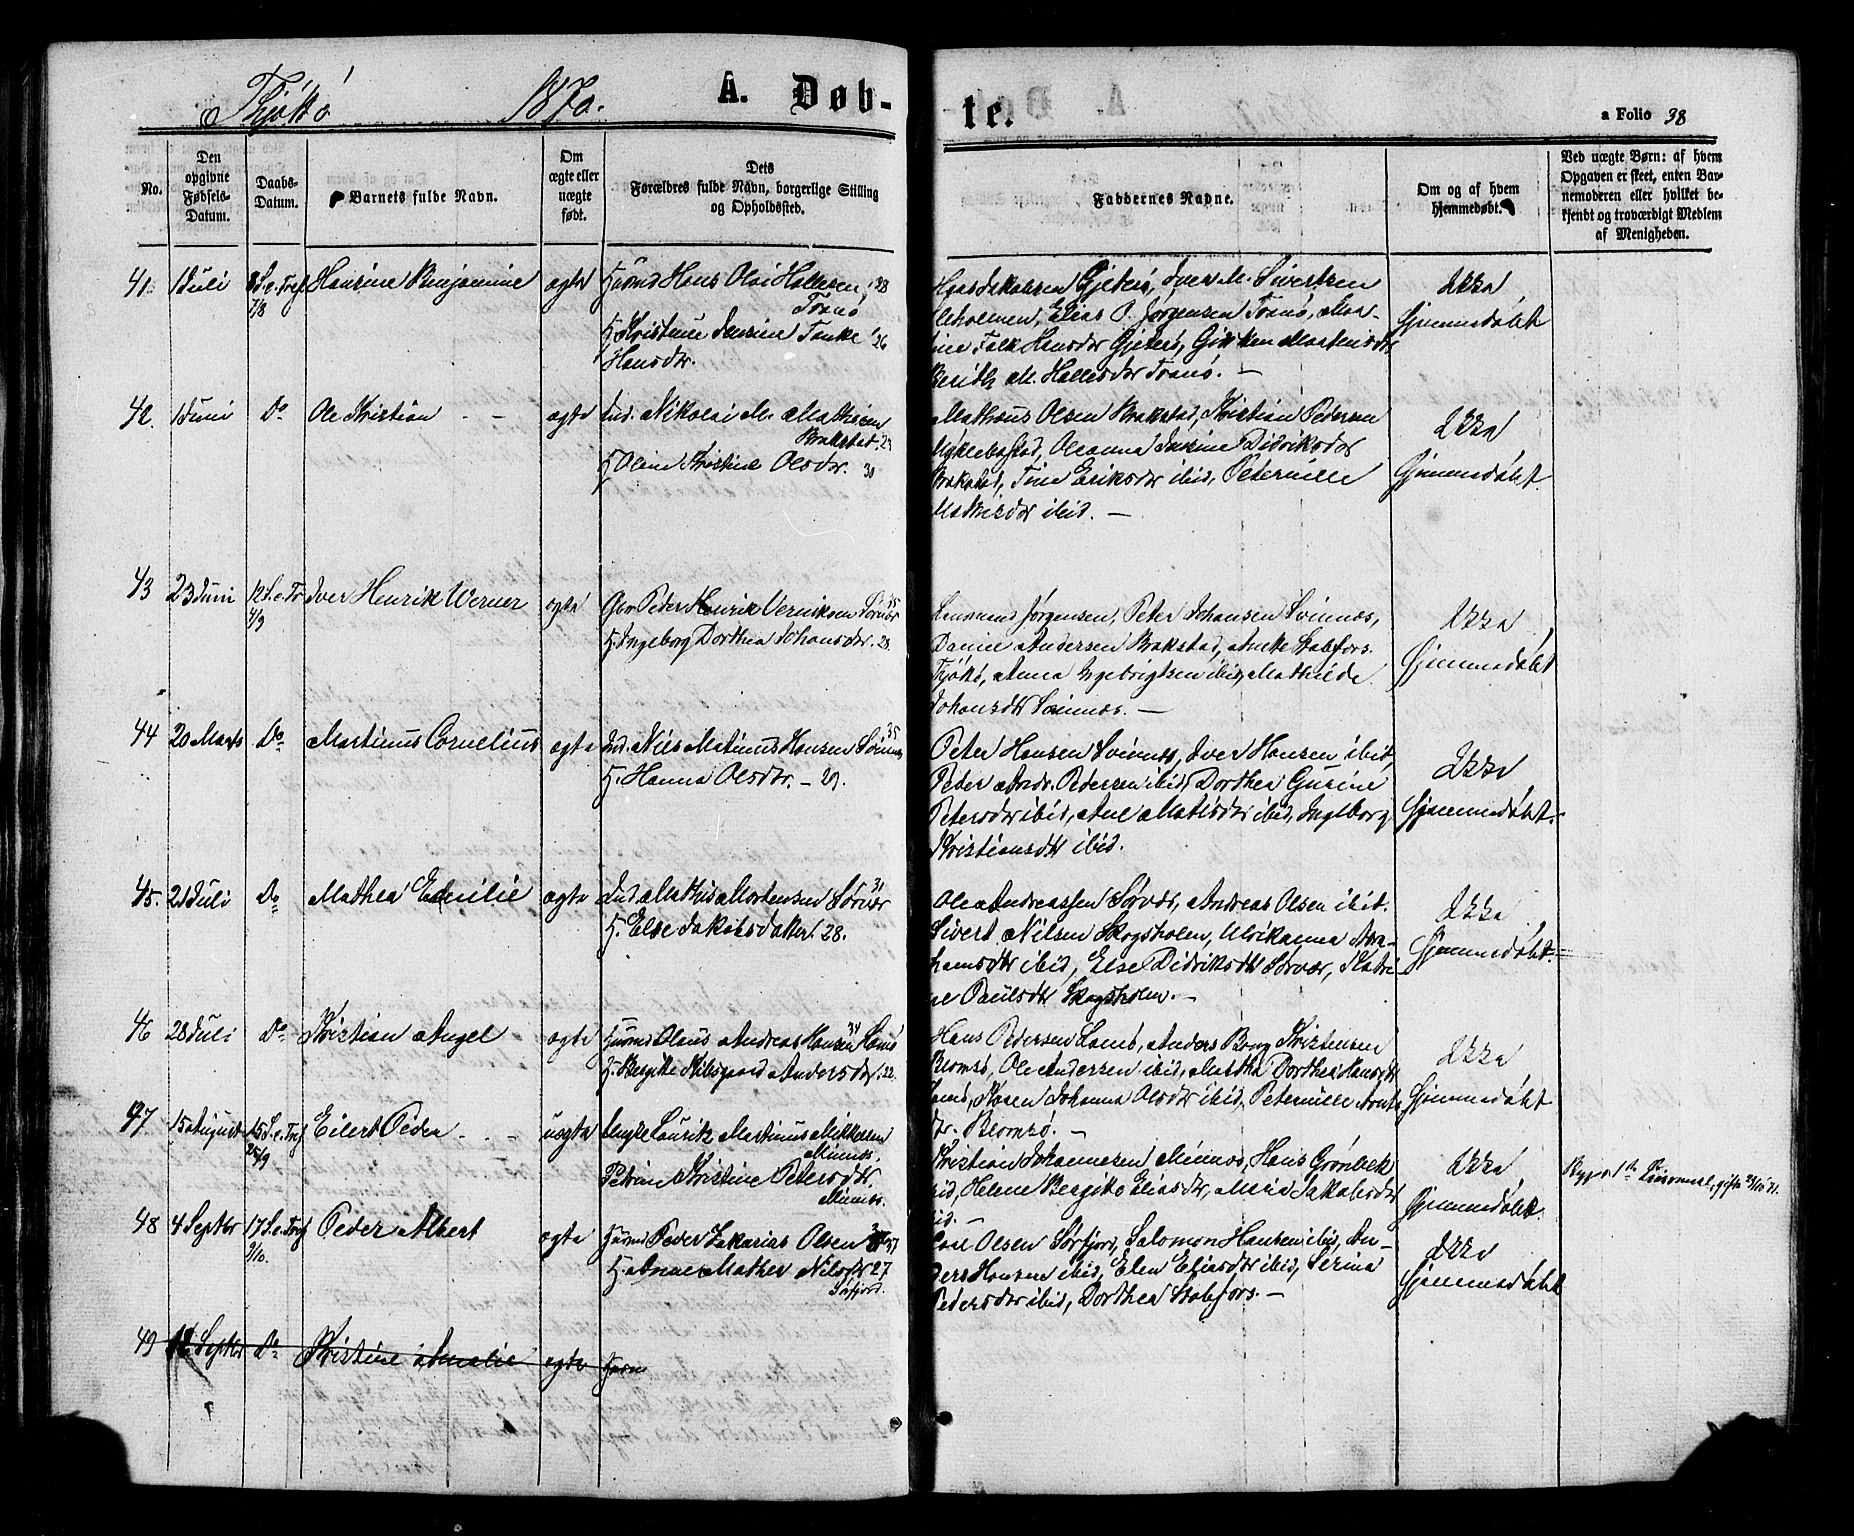 Thjøttø 1870. A. Døb-
te. a Folio 38
No.
Den opgivne Fødsels-Datum.
Daabs-Datum.
Barnets fulde Navn.
Om ægte eller uægte født.
Dets Forældres fulde Navn, borgerlige Stilling og Opholdssted.
Faddernes Navne.
Om og af hvem hjemmedøbt.
Ved uægte Børn: af hvem Opgaven er skeet, enten Barnemoderen eller hvilket bekjendt og troværdigt Medlem af Menigheden.
41. 1 Juli 8 S. e. Tref 7/8 Hansine Benjamine ægte Hans Olai Hallesen, 28
Tranø
Kristine Jensine Tanke 26
Hansdtr.
Gjeterø, Iver M. Sivertsen
Elias P. Jørgensen Tranø,
Falk Hansdtr Gjeterø,
Berith M. Hallesdtr Tranø. —
Ikke
hjemmedøbt
42. 1 Juni Do Ole Kristian - - ægte Ind. Nikolai M. Mathisen
Brakstad. 29
H. Oline Kristine Olsdtr. 30
Mathæus Olsen Brakstad, Kristian Pedersen
Myklebostad, Oleanna Didriksdtr
Brakstad, Tine Eriksdtr ibid, Peternille
ibid. —
Ikke
hjemmedøbt.
43 23 Juni 12 S. e. Tr 4/9 Iver Henrik Werner ægte Peder Henrik 35
H. Ingeborg Dorthea Johansdtr. 28.
Jørgensen, Peter Johansen Svinnæs,
Daniel Andersen Brakstad,
Tjøttø, Anna Ingebrigtsen ibid, Mathilde
Johansdtr Svinnæs. —
Ikke
hjemmedøbt
44 20 Marts Do Martinus Cornelius ægte Ind. Nils Matinus Hansen Svinnæs 35
H. Hanna Olsdtr. - 29.
Peter Hansen Svinnæs, Iver Hansen ibid,
Peter Andr. Pedersen ibid, Dorthea Gurine
Petersdtr ibid, Ane Matisdtr ibid, Ingeborg
Kristiansdtr ibid.
Ikke
hjemmedøbt.
45. 21 Juli Do Mathea Emilie ægte Ind. Mathis Mortensen Sørvær 31
H. Else Jakobsdatter. 28.
Ole Andreassen Sørvær, Andreas Olsen ibid.
Sivert Nilsen Skogsholm, Ulrikanna Abra-
hamsdtr ibid, Else Didriksdtr Sørvær, Katri-
ne Paulsdtr Skogsholm. —
Ikke
hjemmedøbt.
46 28 Juli Do Kristian Angel ægte Olaus Andreas Hansen 34
H. Bergitte Andersdtr. 22.
Hans Pedersen Anders Kristensen
Blomsø, Ole Andersen ibid, Martha Dorthea Hansdtr
Karen Johanna Olsdtr ibid, Peternille
Blomsø. —
Ikke
hjemmedøbt
47 15 August 15 S. e. Tref 25/9 Eilert Peder - - uægte Laurits Martinus Mikkelsen
Minnæs.
Petrine Kristine Petersdtr.
Minnæs.
Kristian Johannesen Minnæs, Hans Grønbek
ibid, Helene Bergitte Eliasdtr, Maria Jakobsdtr
ibid. —
Ikke
hjemmedøbt.
48 4 Septbr 17 S. e. Tref 9/10. Peder Albert ægte Peder Zakarias Olsen 37
H. Anne Mathea Nilsdtr 27
Sørfjord.
Olsen Sørfjord, Salomon Hansen ibid, An-
ders Hansen ibid, Elen Eliasdtr ibid, Serina
Pedersdtr ibid, Dorthea —
Ikke
hjemmedøbt
49 Septbr Do Kristine Amalie ægte